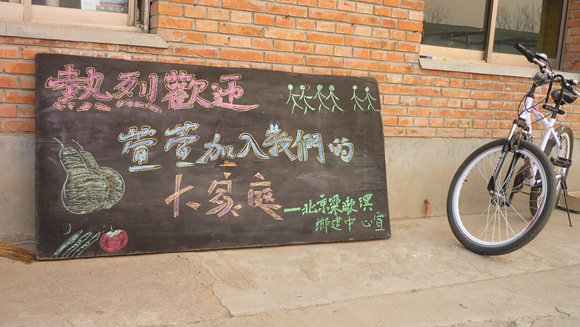 熱烈歡迎
萱萱加入我們的
大家庭
——北京梁漱溟
鄉建中心宣